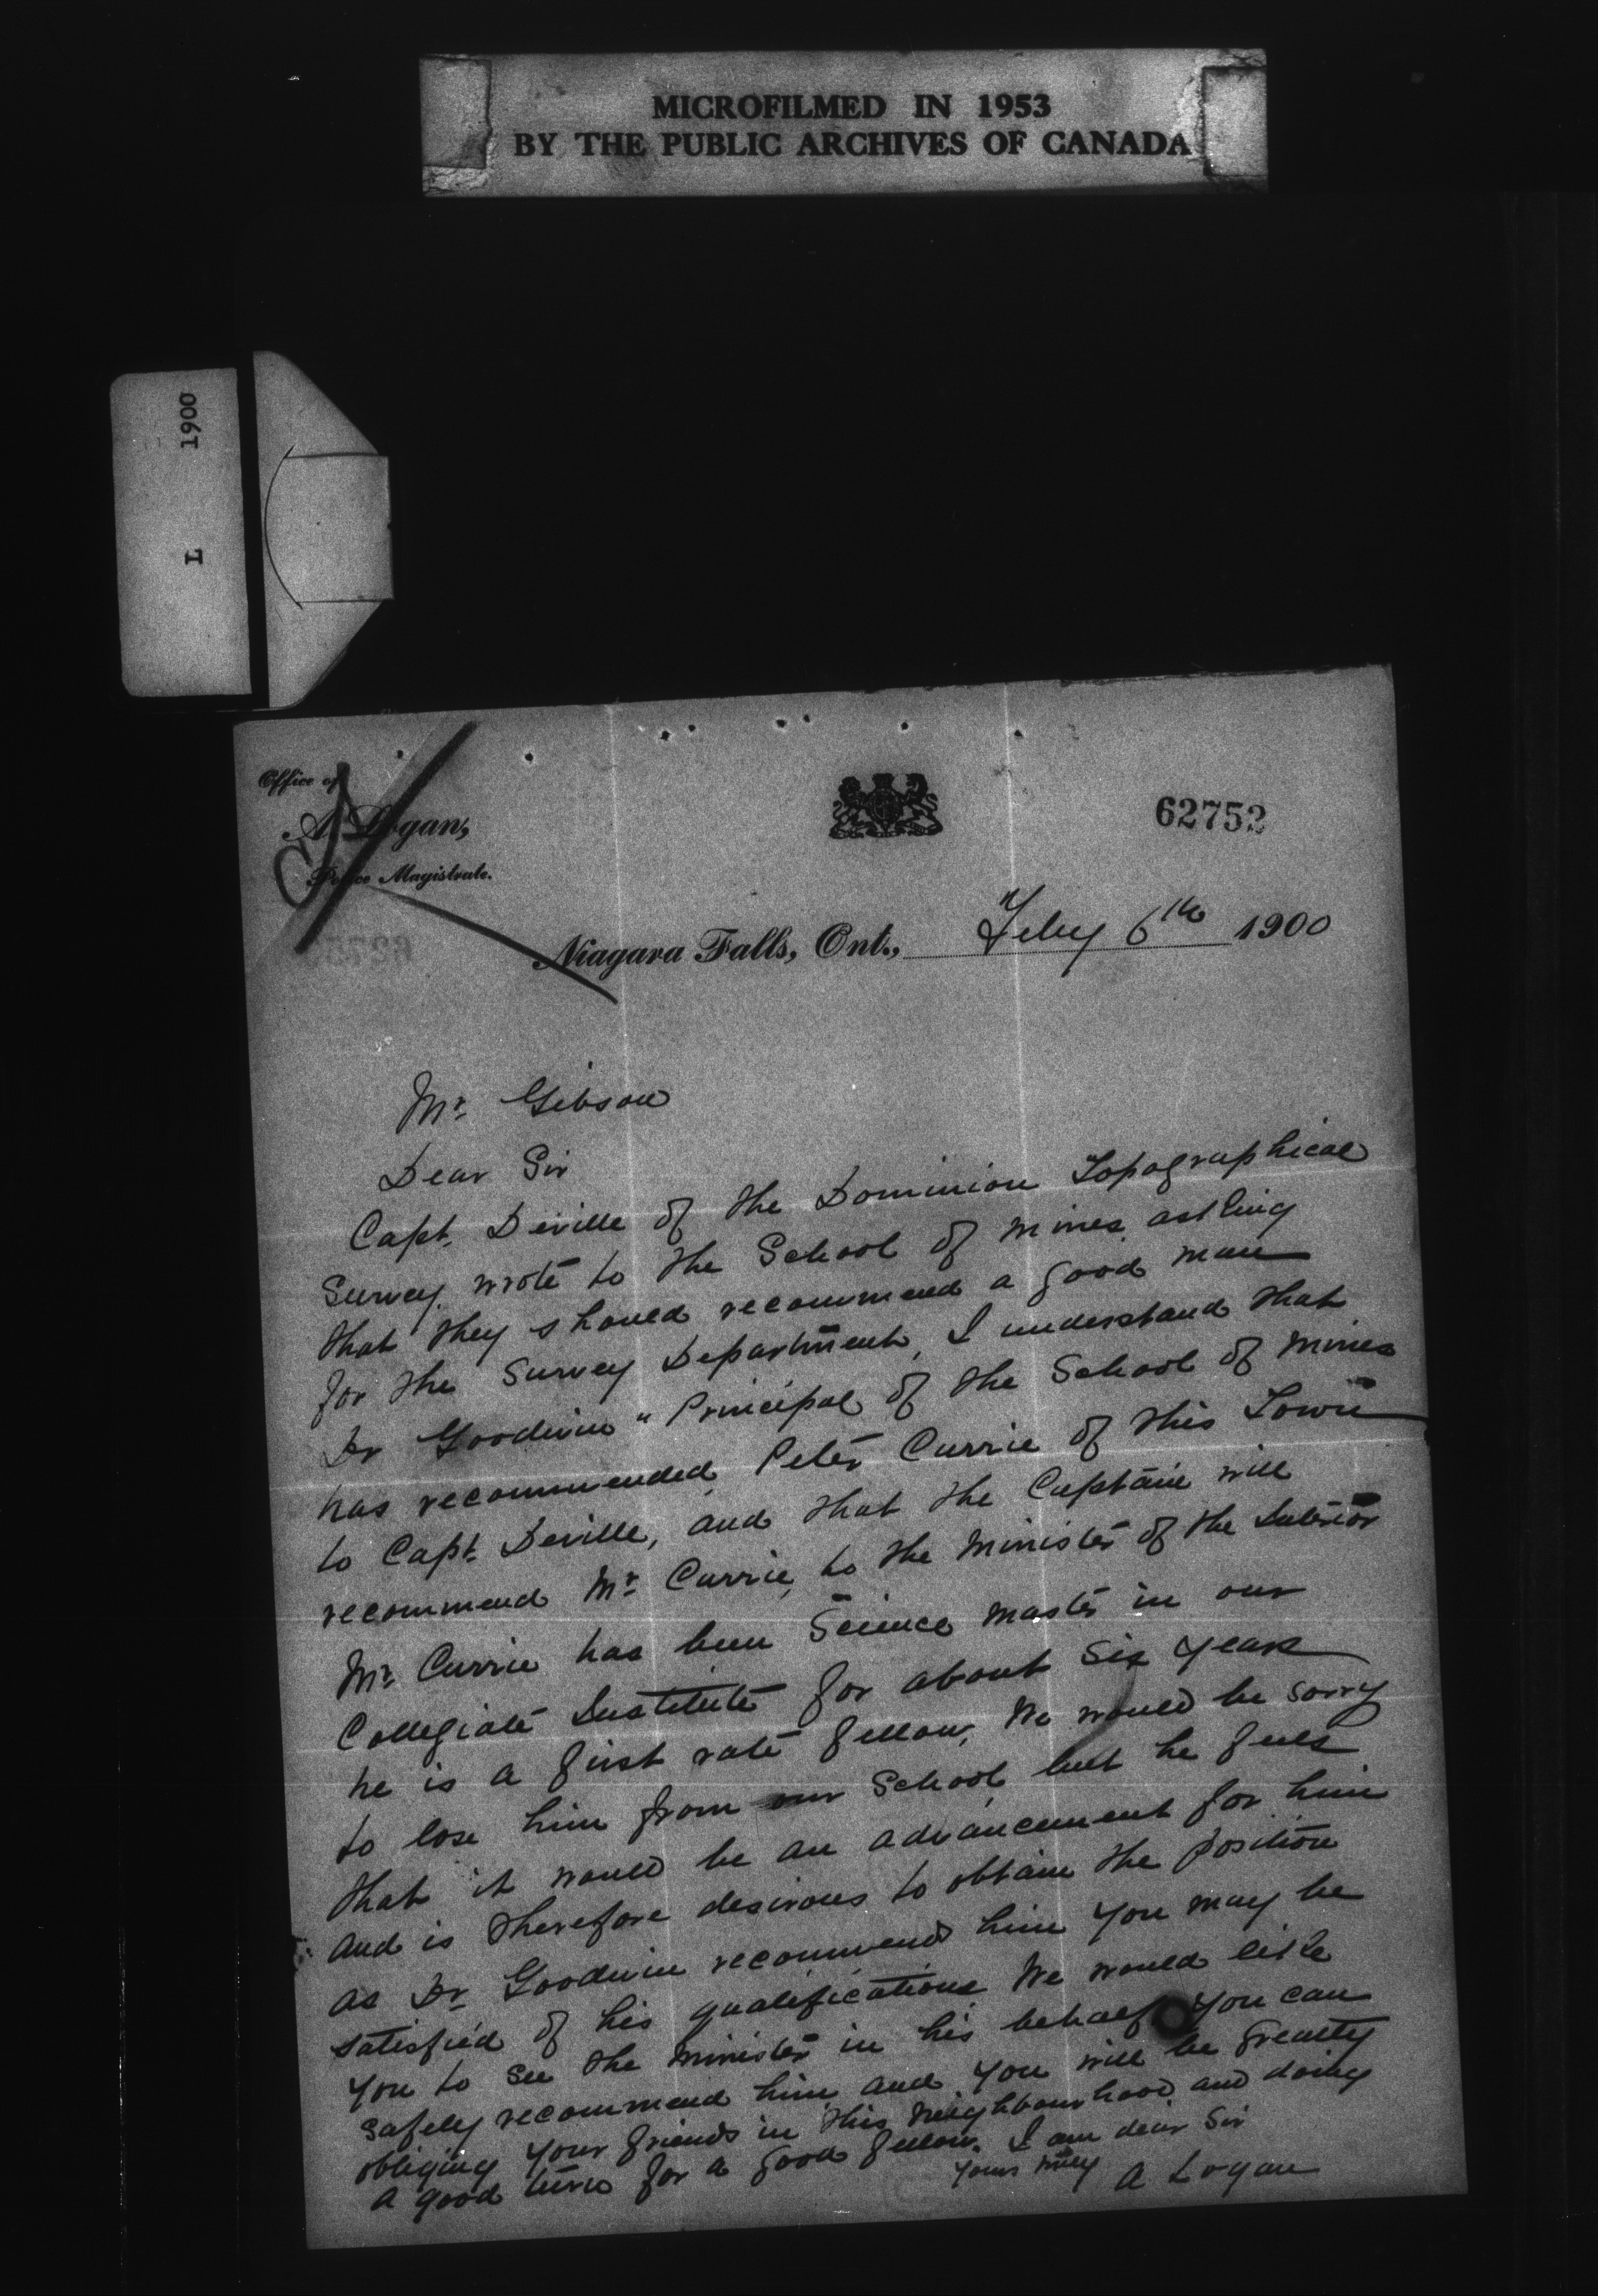 MICROFILMED IN 1953
BY THE PUBLIC ARCHIVES OF CANADA
1900
L
Office of
A. Logan,
Police Magistrate.
62752
Niagara Falls, Ont., Feby 6th 1900
Mr. Gibson
Dear Sir
Capt. Deville of the Dominion Topographical
Survey wrote to the School of Mines asking
that they should recommend a good man
for the Survey Department, I understand that
Dr Goodwin " Principal of the School of Mines
has recommended Peter Currie of this Town
to Capt. Deville, and that the Captain will
recommend Mr. Currie to the Minister of the Interior
Mr. Currie has been Science Master in our
Collegiate Institute for about six years
he is a first rate fellow, We would be sorry
to lose him from our School but he feels
that it would be an advancement for him
and is therefore desirous to obtain the position
as Dr. Goodwin recommend him you may be
satisfied of his qualifications We would like
you to see the Minister in his behalf you can
safely recommend him and you will be greatly
obliging your friends in this neighbourhood and doing
a good turn for a good fellow. I am dear Sir
yours truly
A Logan